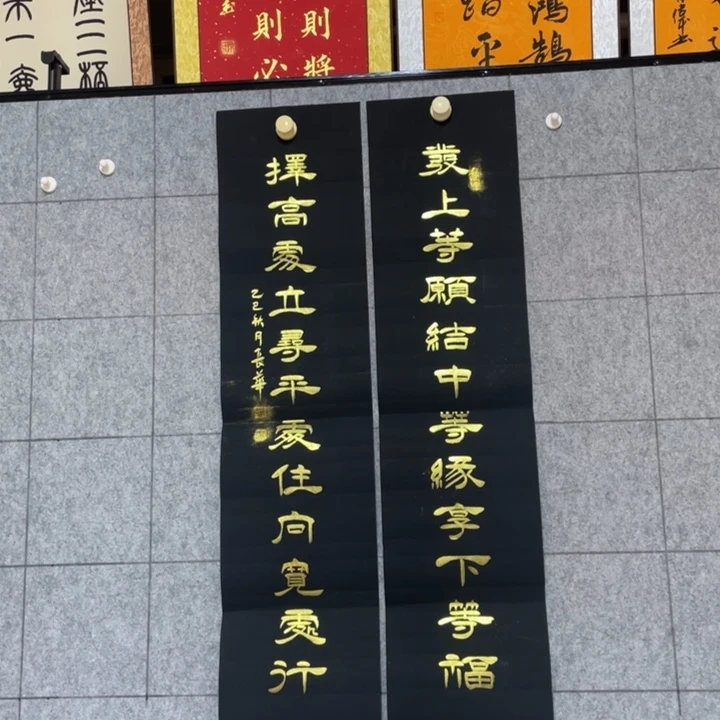 發上等願結中等緣享下等福
擇高處立尋平處住向寬處行
乙巳秋月長華
則將
則必
鴻鵠
踏平